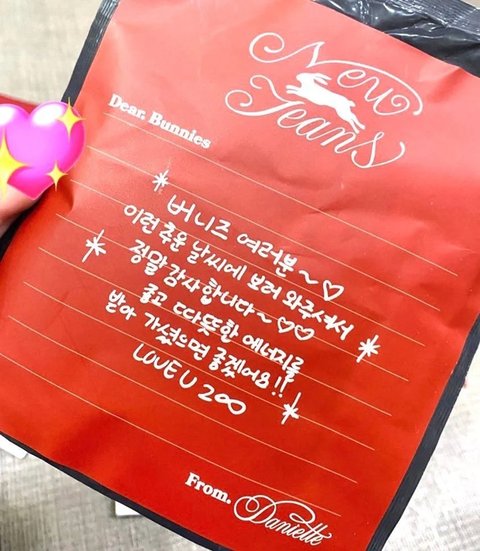 New
Jeans
Dear. Bunnies
버니즈 여러분~♡
이런 추운 날씨에 보러 와주셔서
정말 감사합니다~♡♡
좋고 따뜻한 에너지를
받아 가셨으면 좋겠어요!!
LOVE U 2∞
From. Danielle